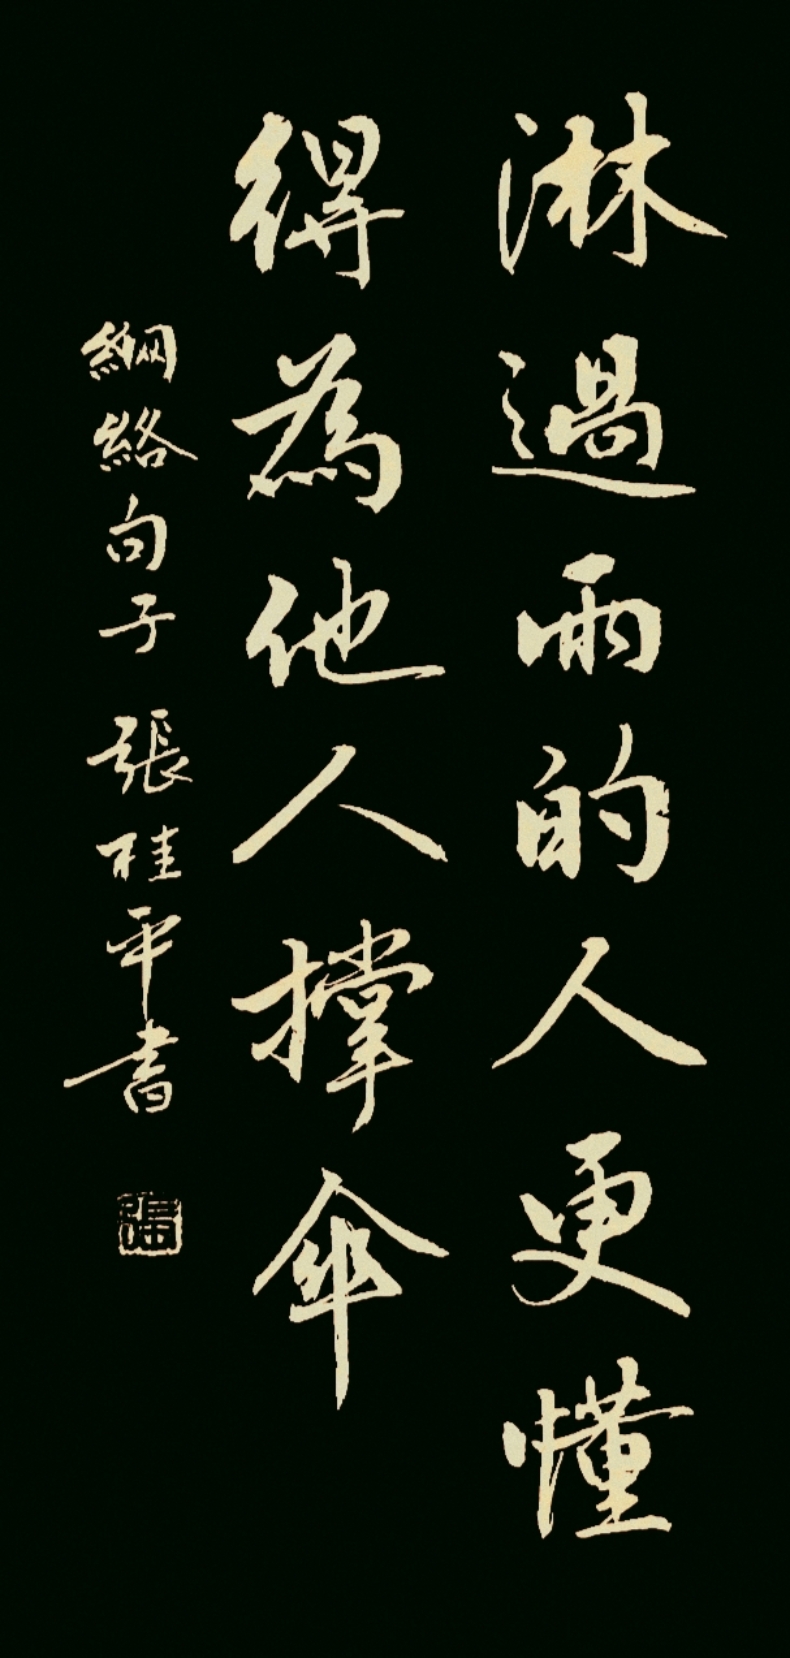 淋過雨的人更懂
得為他人撐傘
網絡句子 張桂平書
張